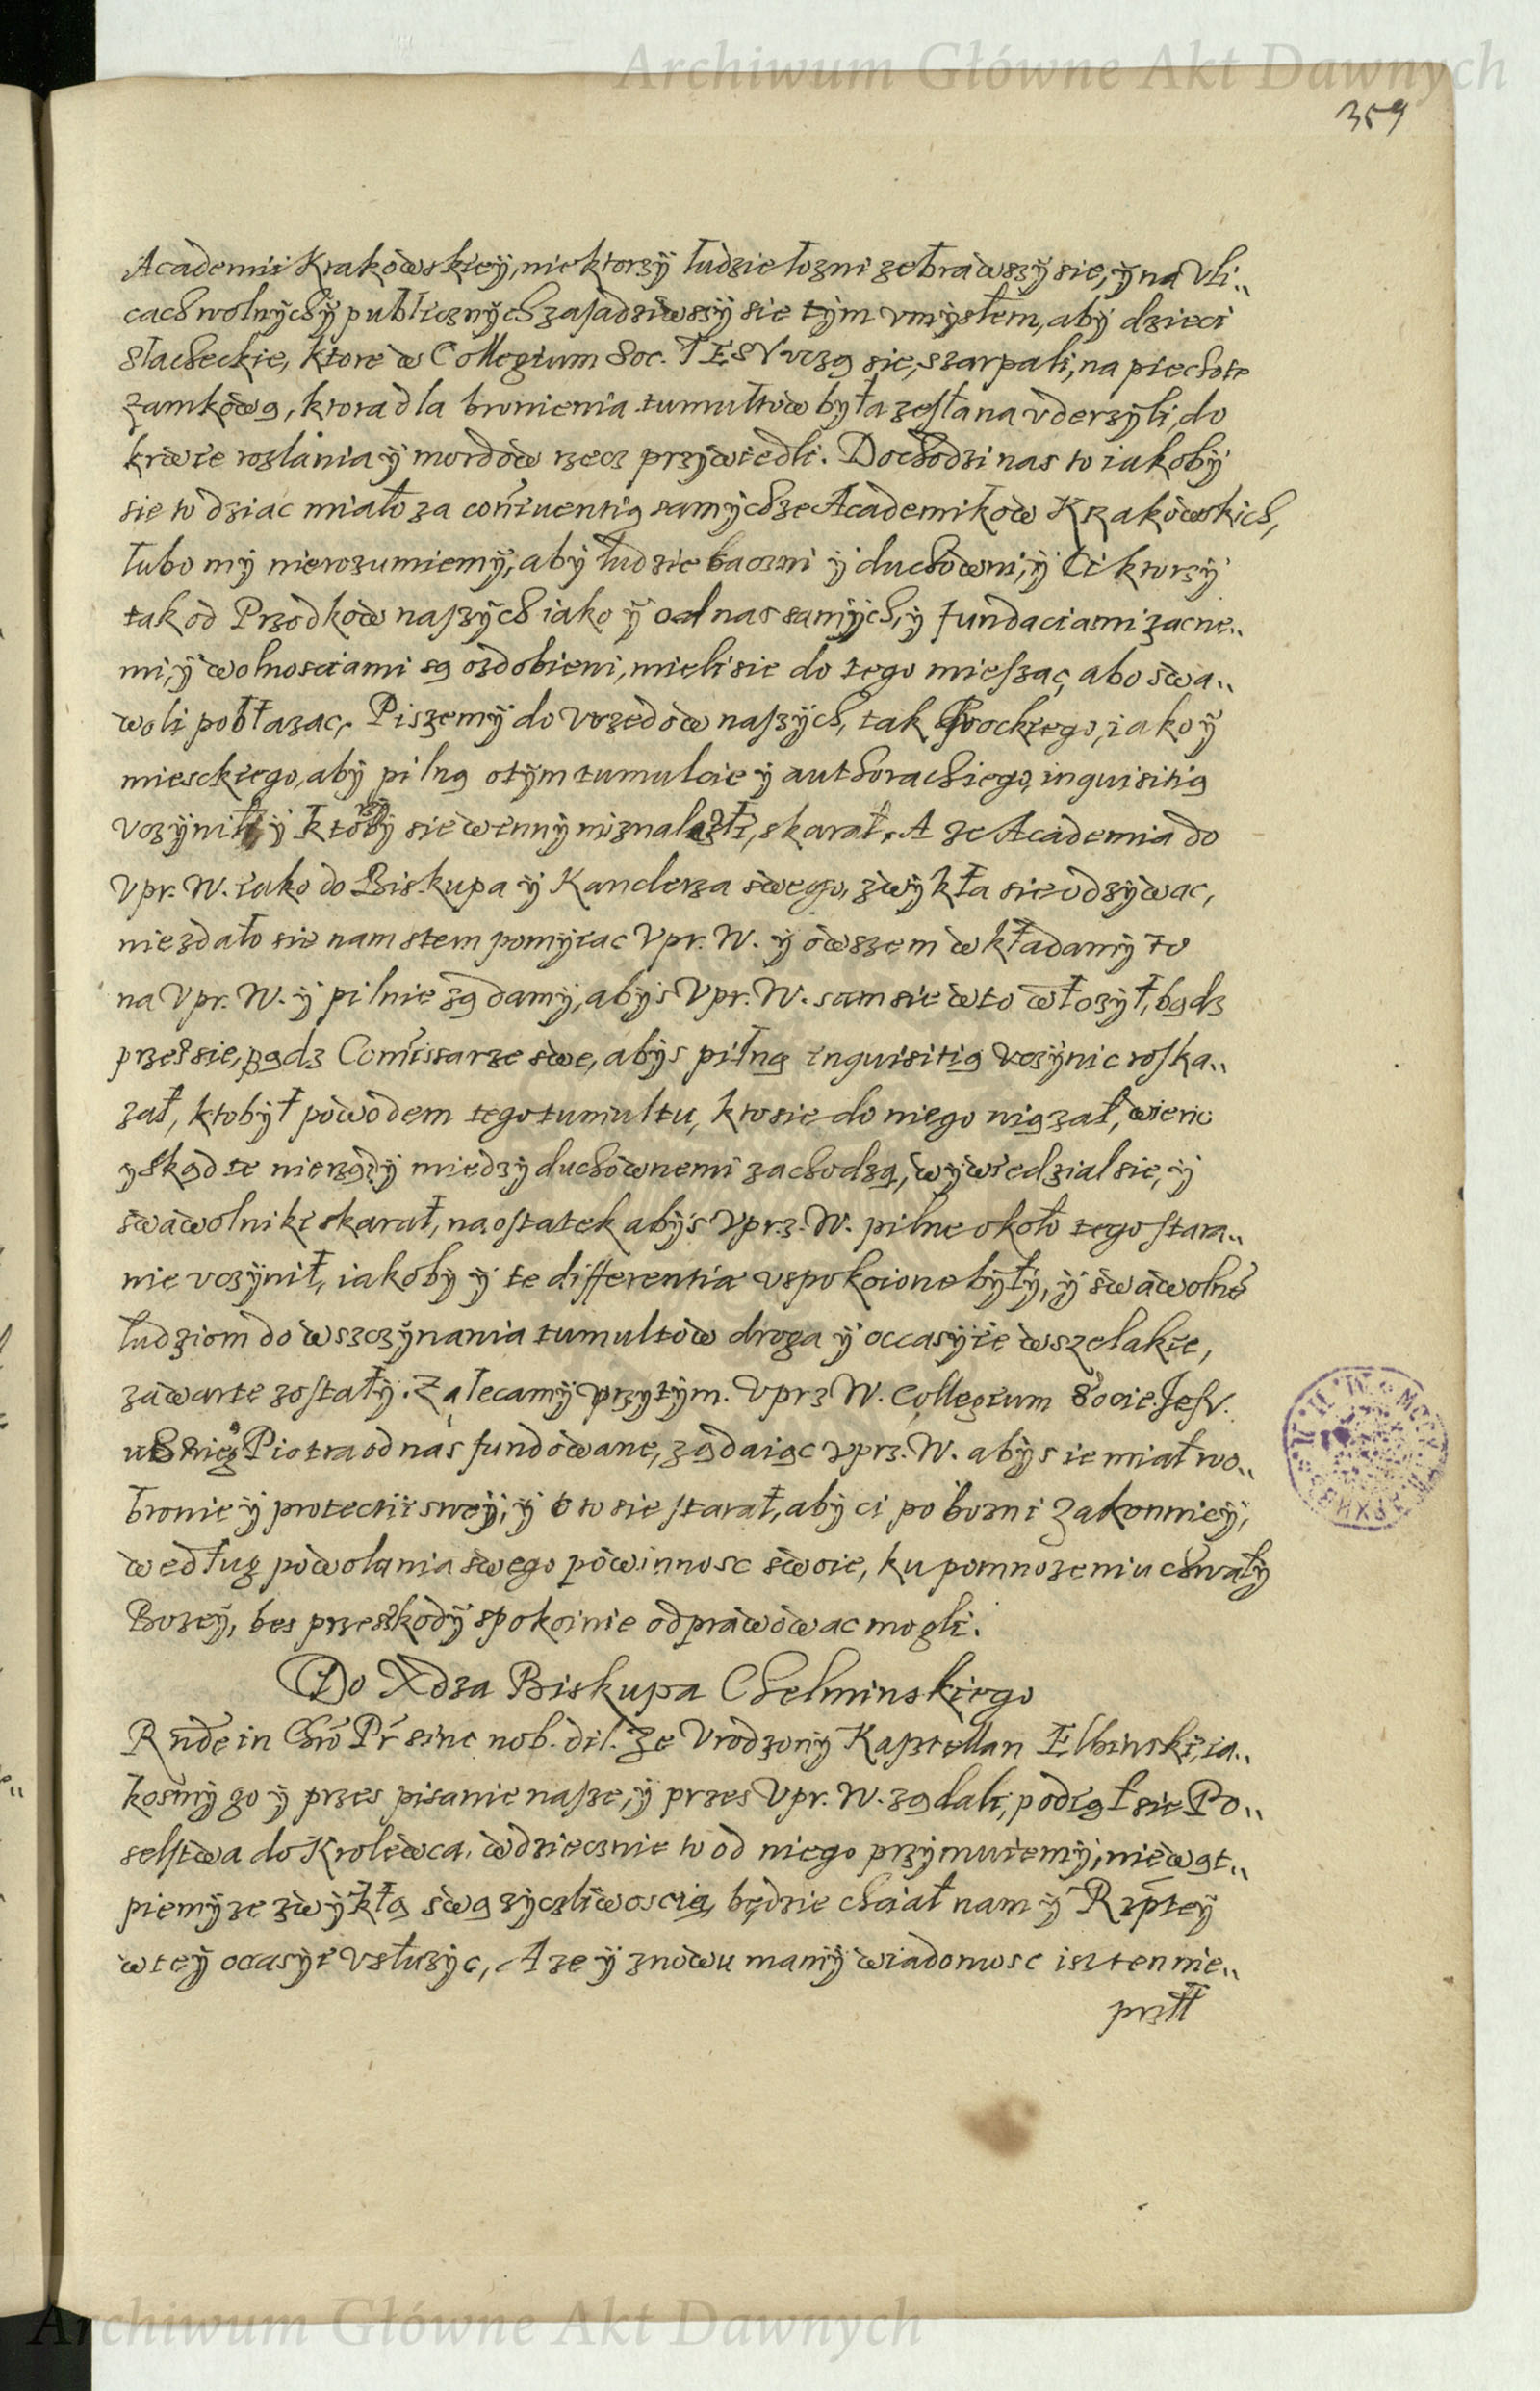 Archiwum Główne Akt Dawnych
359
Academii Krakowskiey, niektorzy ludzie lozni zebrawszy sie, y na vli„
cach wolnych y publicznych zasadziwszy sie tym vmysłem, aby dzieci
slacheckie, ktore w Collegium Soc. IESV vczą sie, szarpali, na piechote
zamkową, ktora dla bronienia tumultow była zesłana vderzyli, do
krwie rozlania y mordow rzecz przywiedli. Dochodzi nas to iakoby
sie to dziac miało za conniuentią samychze Academikow Krakowskich,
lubo my nierozumiemy, aby ludzie baczni y duchowni, y Ci ktorzy
tak od Przodkow naszych iako y od nas samych, y fundaciami zacne„
mi, y wolnosciami są ozdobieni, mieli sie do tego mieszac, abo swa„
woli pobłazac. Piszemy do vrzedow naszych, tak Grockiego, iako y
miesckiego, aby pilną o tym tumulcie y authorach iego, inquisitią
vczynił, y ktorzyby sie winnymi znalezli, skarał. A ze Academia do
Vpr. W. iako do Biskupa y Kanclerza swego, zwykła sie odzywac,
nie zdało sie nam stem pomijac Vpr. W. y owszem wkładamy to
na Vpr. W. y pilnie ządamy, abys Vpr. W. sam sie w to włozył, bądz
przes sie, bądz Commissarze swe, abys pilną inquisitią vczynic roska„
zał, kto był powodem tego tumultu, kto sie do niego wiązał, wienc
y skąd te nierządy miedzy duchownemi zachodzą, wywiedzial sie, y
swawolniki skarał, na ostatek abys Vprz. W. pilne około tego stara„
nie vczynił, iakoby y te differentiæ vspokoione były, y swawolnẽ
ludziom do wszczynania tumultow droga y occasyie wszelakie,
zawarte zostały. Zalecamy przytym. Vprz W. Collegium Socie. Jesv.
v S. Piotra od nas fundowane, ządaiąc vprz. W. abys ie miał w o„
bronie y protectii swey, y o to sie starał, aby ci pobozni Zakonnicy,
według powolania swego powinnosc swoie, ku pomnozeniu chwały
Bozey, bes przeskody spokoinie odprawowac mogli.
Do Xdza Biskupa Chelminskiego
Rnde in Chro Pr sinc nob. dil. Ze Vrodzony Kasztellan Elbinski, ia„
kosmy go y przes pisanie nasze, y przes Vpr. W. ządali, podiął sie Po„
selstwa do Krolewca. wdziecznie to od niego przymuiemy, niewąt„
piemy ze zwykłą swą zyczliwoscią, będzie chciał nam y Rzptey
w tey occasyi vsłuzyc, A ze y znowu mamy wiadomosc isz ten nie„
przÿł
Archiwum Główne Akt Dawnych